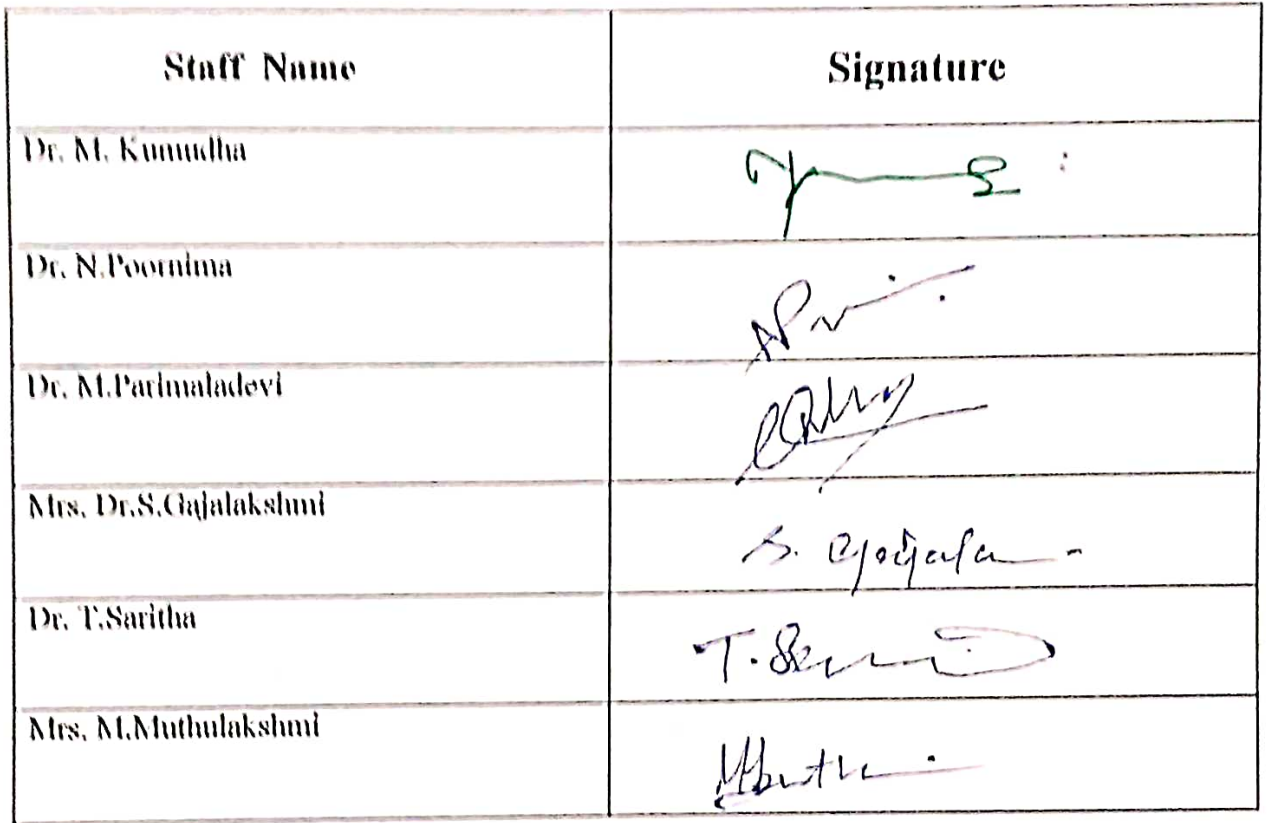 Staff Name Signature
Dr. M. Kumudha
Dr. N.Poornima
Dr. M.Parimaladevi
Mrs. Dr.S.Gajalakshmi
S. Gajala
Dr. T.Saritha
Mrs. M.Muthulakshmi